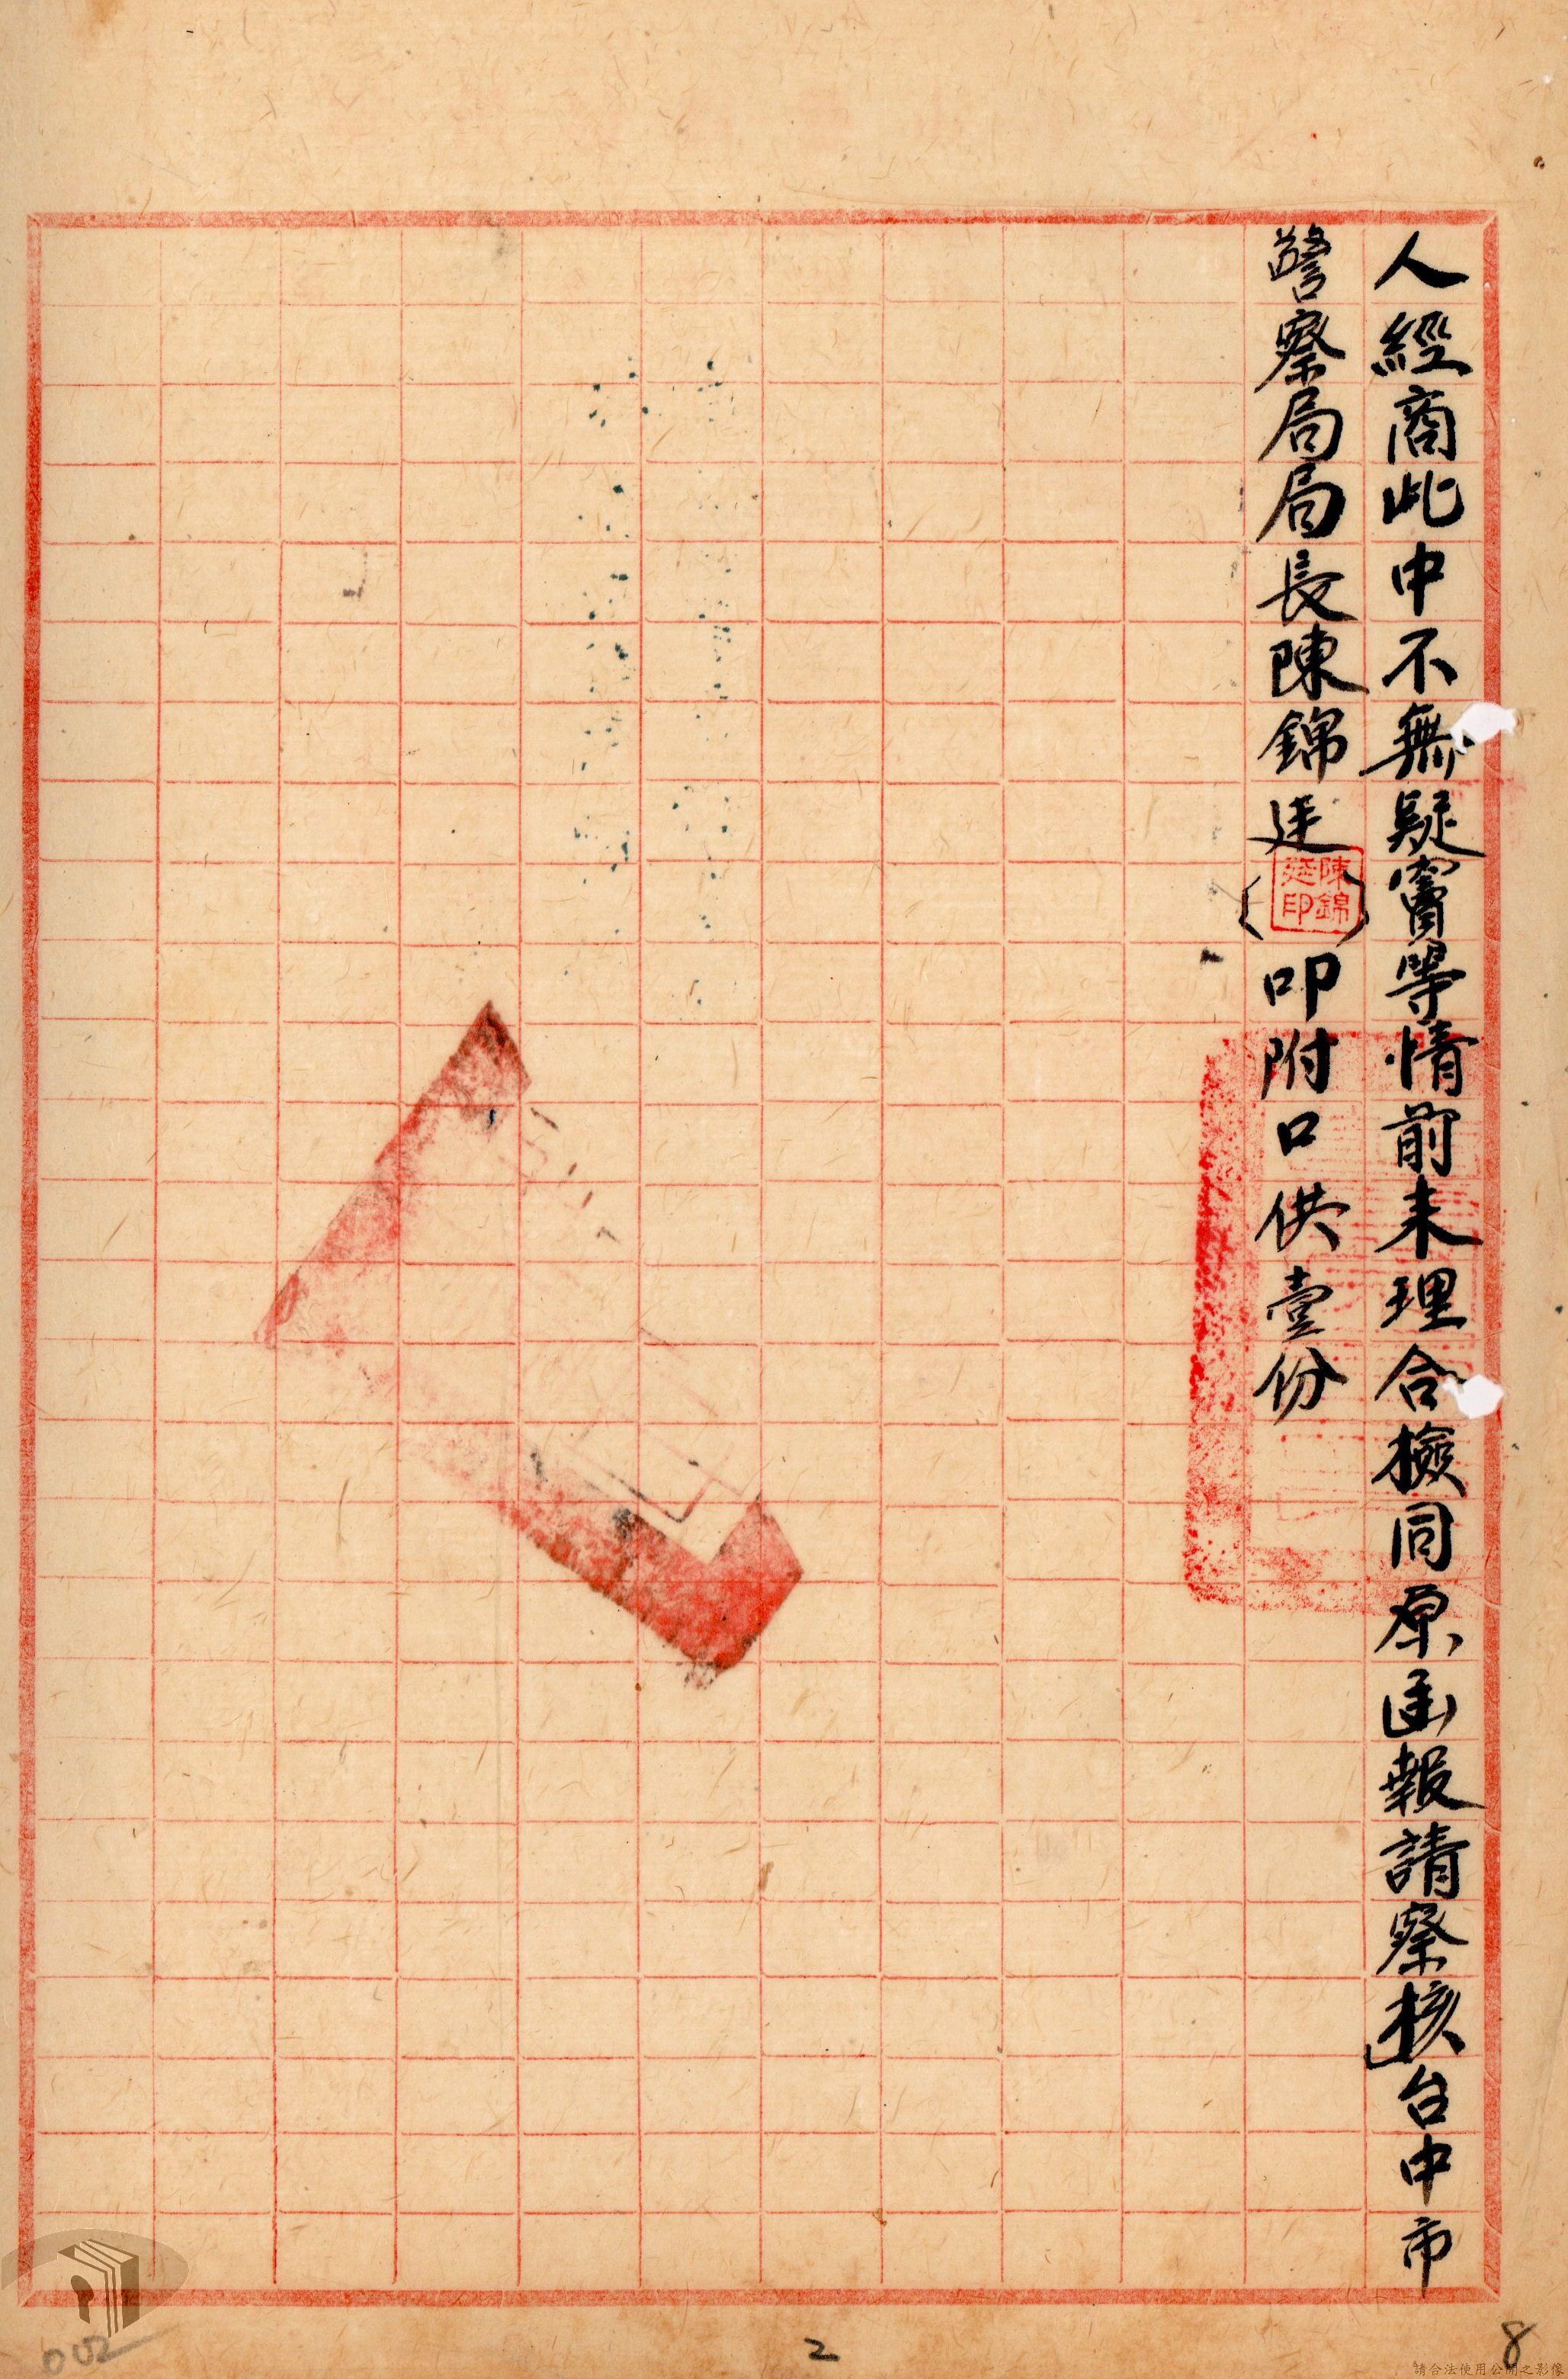 人經商此中不無疑竇等情前来理合檢同原函報請察核」台中市
警察局局長陳錦廷(陳錦廷印)印附口供壹份
002
2
8
請合法使用公開之影像